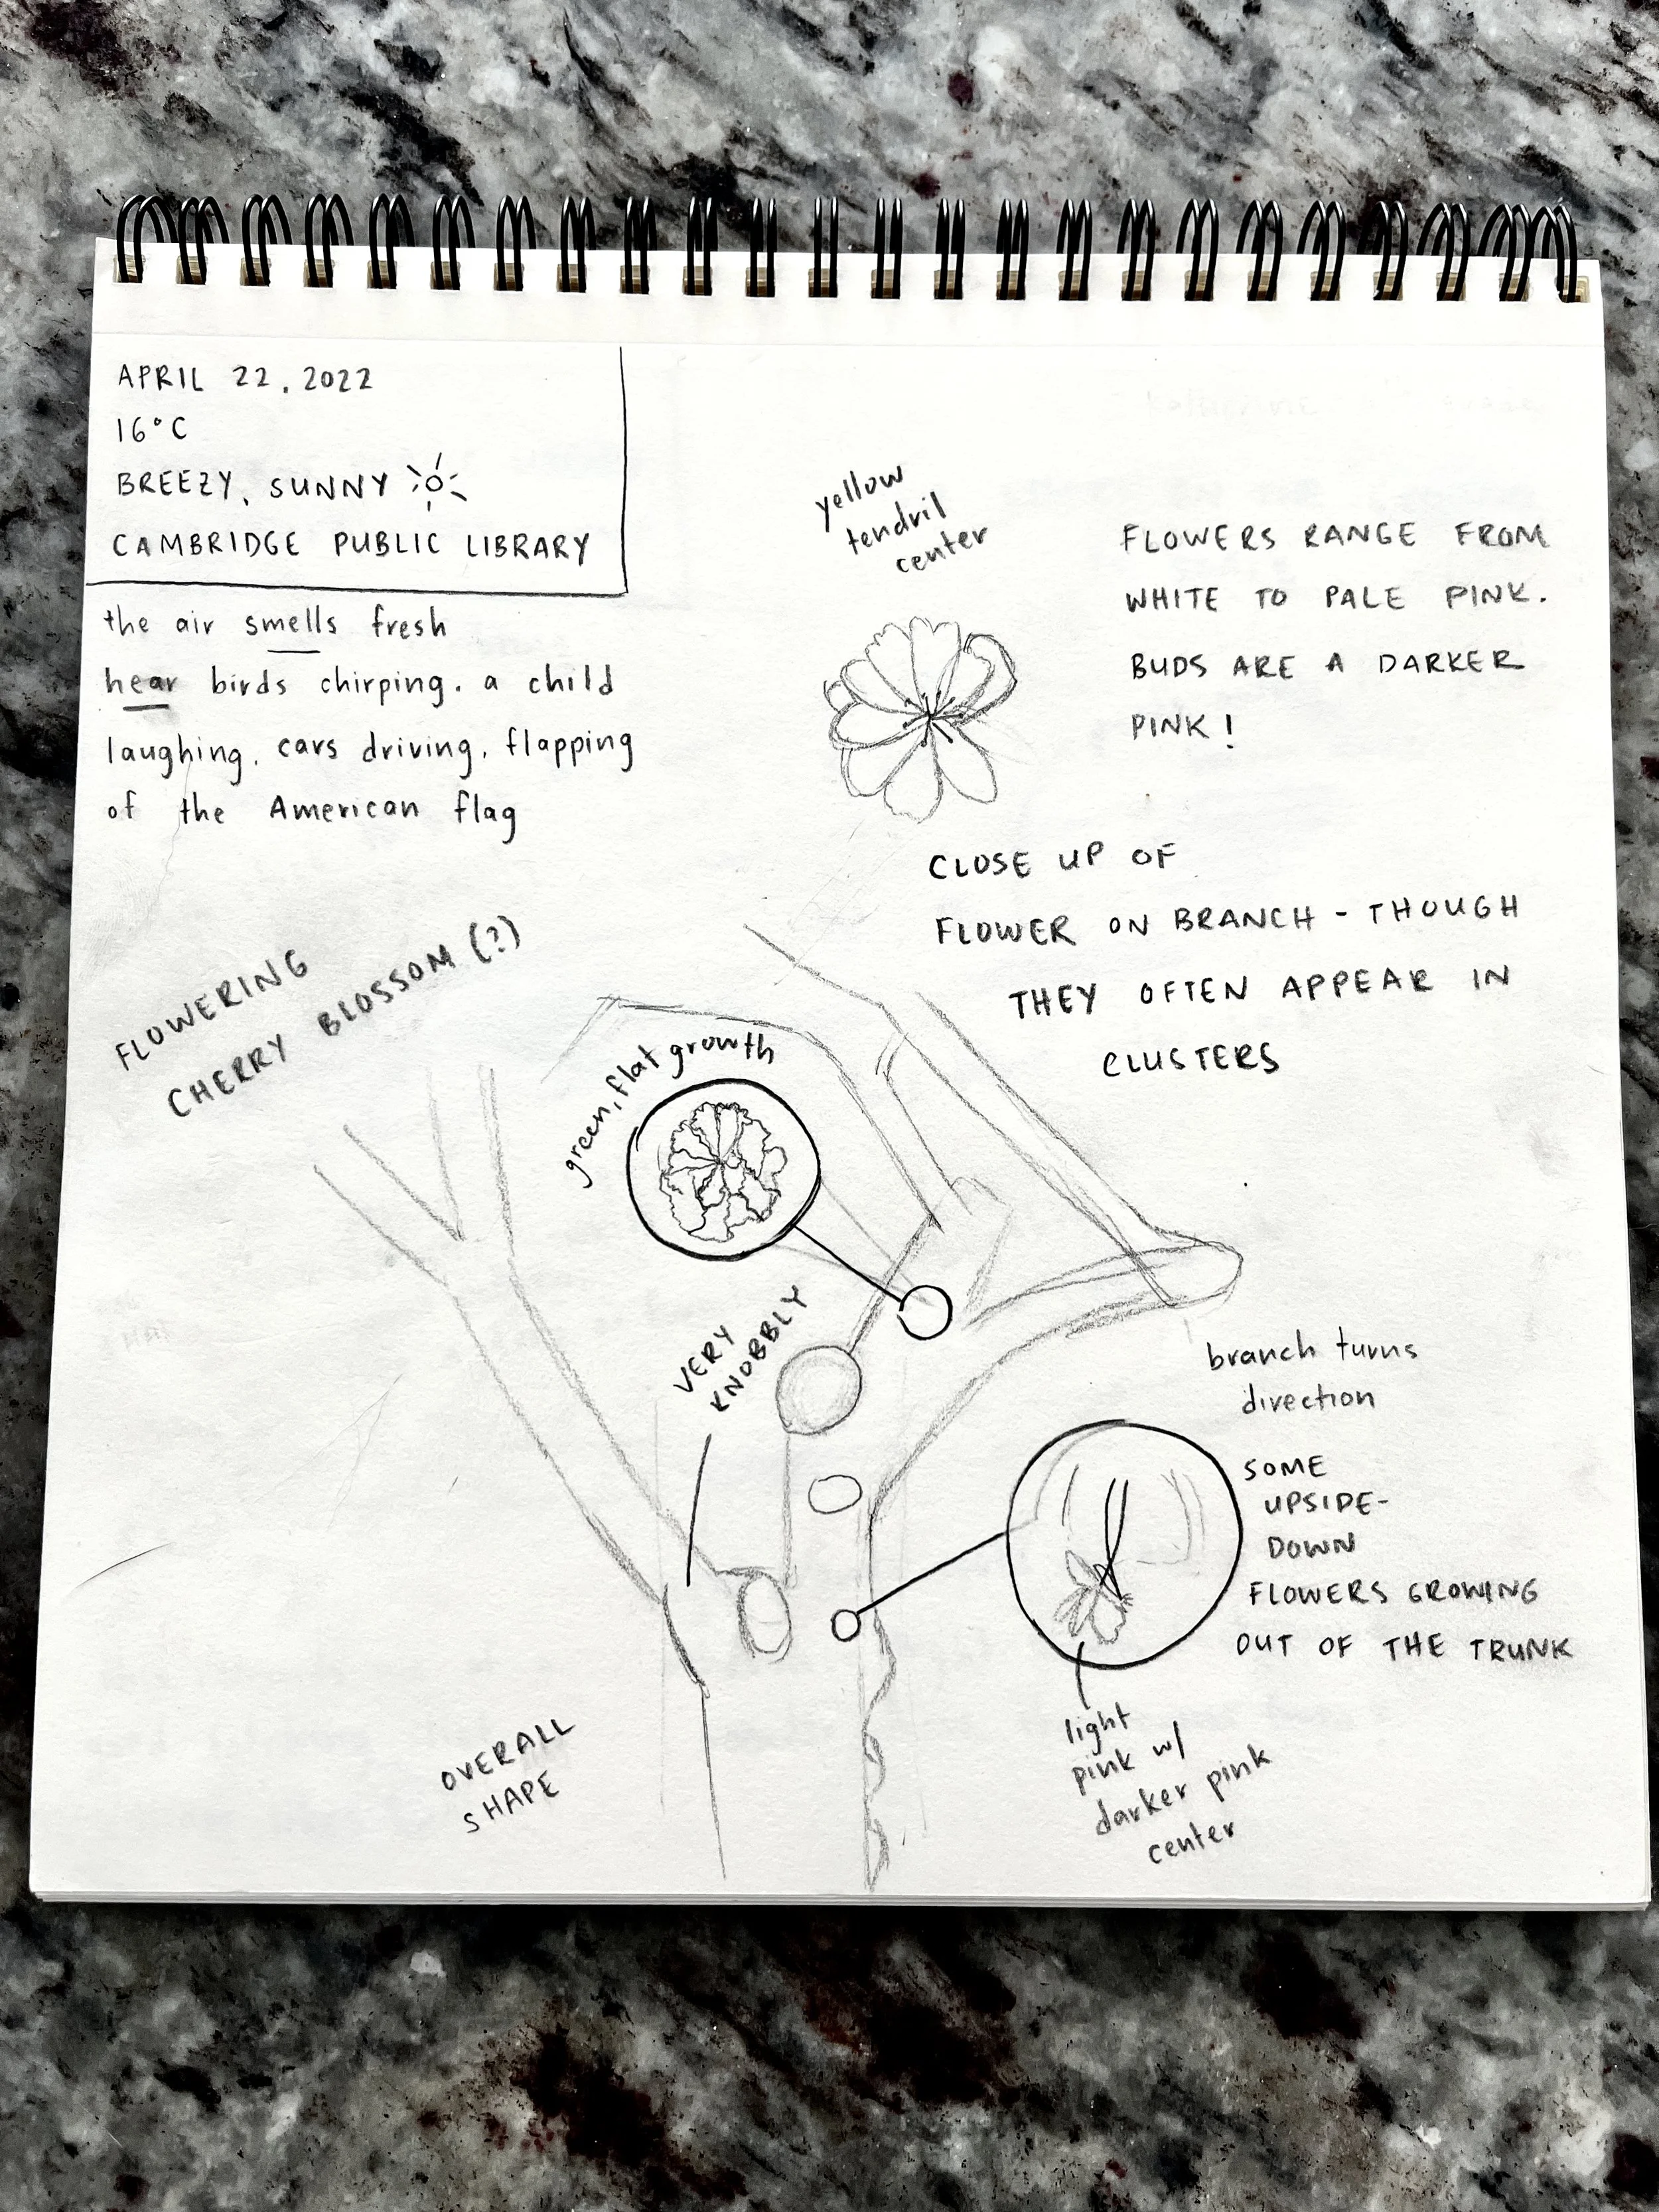 APRIL 22, 2022
16°C
BREEZY, SUNNY
CAMBRIDGE PUBLIC LIBRARY
the air smells fresh
hear birds chirping. a child
laughing, cars driving, flapping
of the American flag
yellow
tendril
center
FLOWERS RANGE FROM
WHITE TO PALE PINK.
BUDS ARE A DARKER
PINK!
CLOSE UP OF
FLOWER ON BRANCH - THOUGH
THEY OFTEN APPEAR IN
CLUSTERS
FLOWERING
CHERRY BLOSSOM (?)
green, flat growth
VERY
KNOBBLY
branch turns
direction
SOME
UPSIDE-
DOWN
FLOWERS GROWING
OUT OF THE TRUNK
light
pink w/
darker pink
center
OVERALL
SHAPE